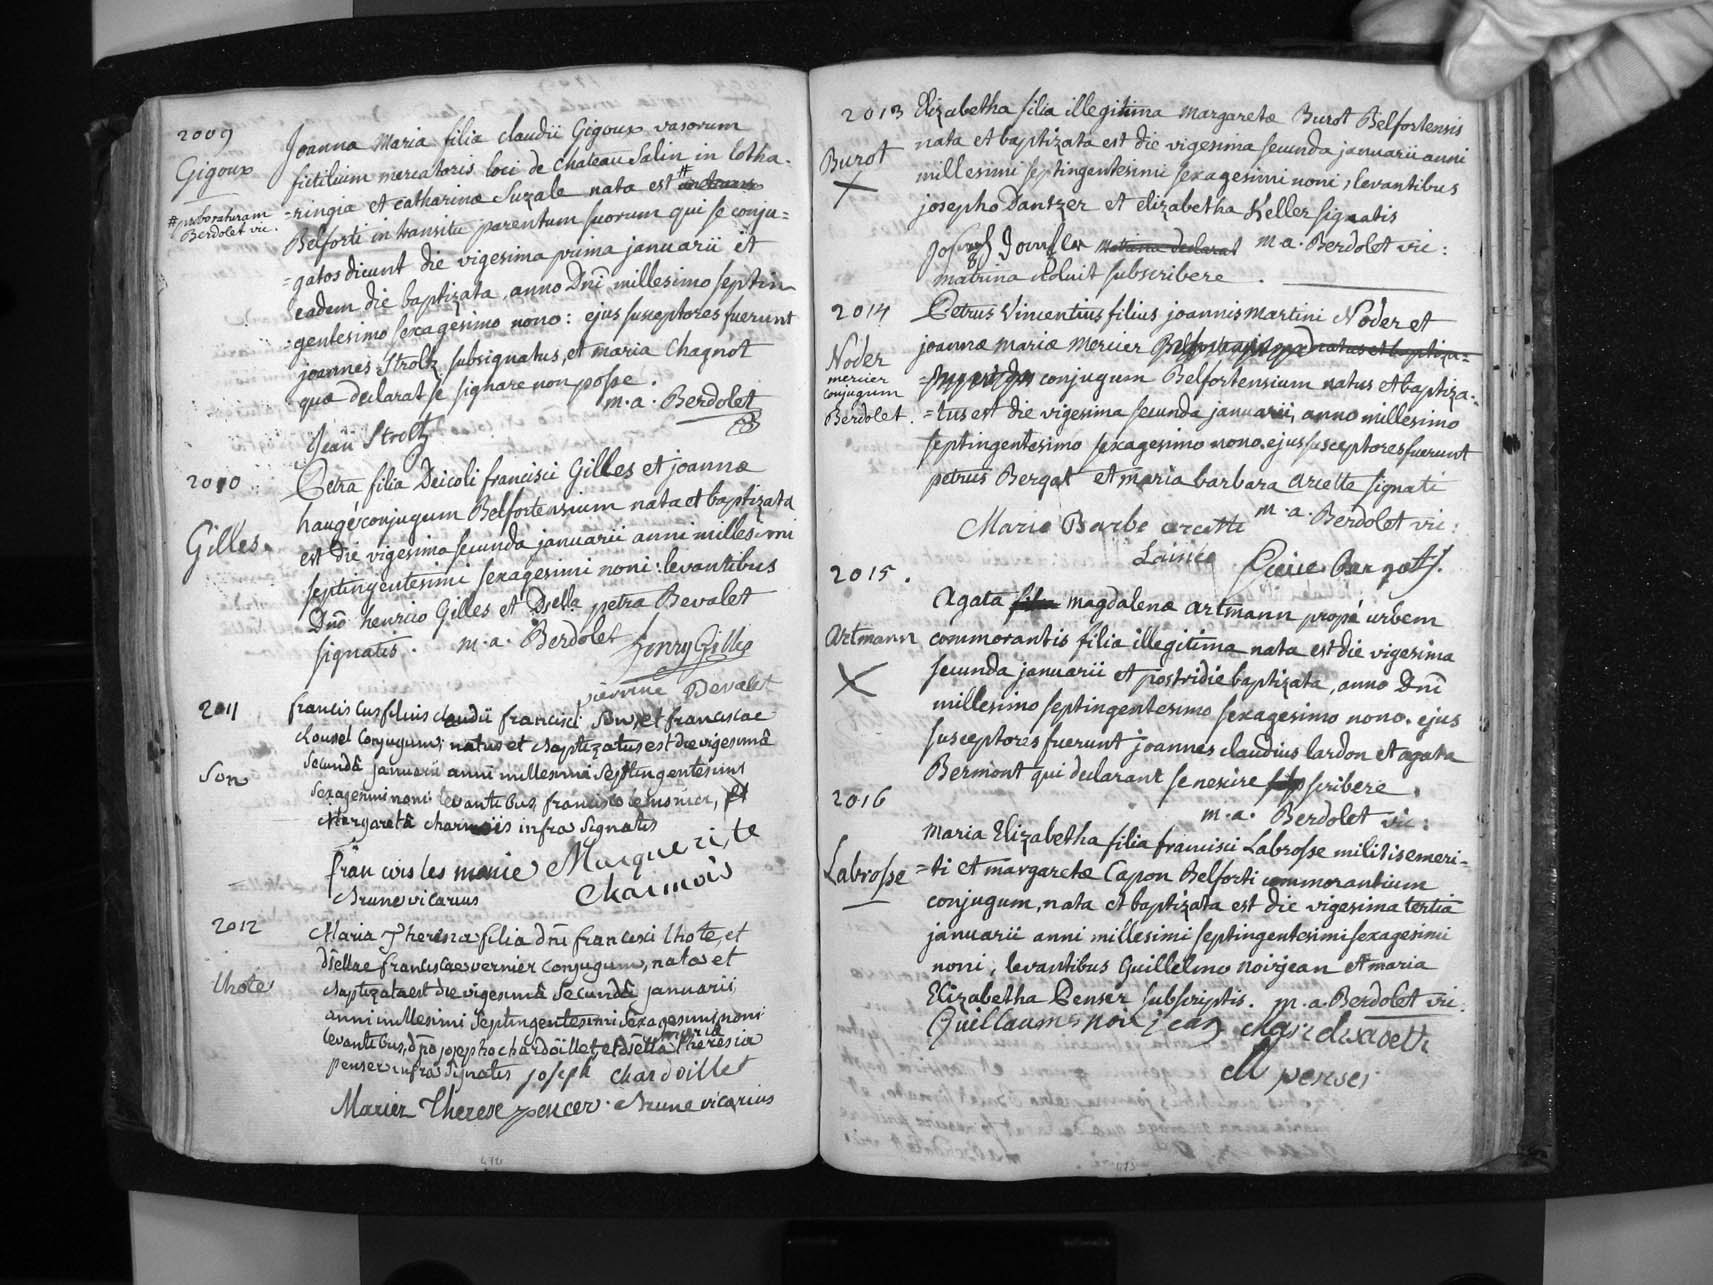 2009
Gigoux
# probo raturam
Berdolet vic.
Joanna Maria filia claudii Gigoux vasorum
fictilium mercatoris loci de Chateau Salin in Lotha-
=ringia et catharinæ Suzale nata est #
Belforti in transitu parentum suorum qui se conju=
=gatos dicunt die vigesima prima januarii et
eadem die baptizata, anno Dnī millesimo septin
gentesimo sexagesimo nono: ejus susceptores fuerunt
joannes Stroltz subsignatus, et maria Chagnot
quæ declarat se signare non posse.
m.a. Berdolet
Jean Stroltz
2010
Gilles.
Petra filia Deicoli francisci Gilles et joannæ
haugé conjugum Belfortensium nata et baptizata
est die vigesima secunda januarii anni millesimi
septingentesimi sexagesimi noni: levantibus
Dnō henrico Gilles et Dsella petra Devalet
signatis. m.a. Berdolet henry Gilles
pierrine Devalet
2011
Son
franciscus filius claudii francisci Son, et franciscae
Rousel conjugum; natus et baptizatus est die vigesimâ
secundâ januarii anni millesimi septingentesimi
sexagesimi noni levantibus, francisco le monier, et
Margaretâ charmois infra signatis
françois les monie Marguerite
Charmois
Brune vicarius
2012
lhote
Maria Theresia filia dnī francisci lhote, et
dsellae franciscae vernier conjugum, nata et
baptizata est die vigesimâ secundâ januarii
anni millesimi septingentesimi sexagesimi noni
levantibus, dno josepho chardoillet, et dsella maria Theresia
penser infra signatis joseph chardoillet
Mariez Therese pencer. Brune vicarius
2013
Burot
X
Elizabetha filia illegitima Margaretæ Burot Belfortensis
nata et baptizata est die vigesima secunda januarii anni
millesimi septingentesimi sexagesimi noni, levantibus
josepho Dantzer et elizabetha Keller signatis
Matrina declarat m.a. Berdolet vic:
matrina noluit subscribere.
2014
Noder
mercier
conjugum
Berdolet.
Petrus Vincentius filius joannis martini Noder et
joannæ mariæ mercier natus et baptiza=
conjugum Belfortensium natus et baptiza-
=tus est die vigesima secunda januarii, anno millesimo
septingentesimo sexagesimo nono. ejus susceptores fuerunt
petrus Bergat et maria barbara arcette signati
m.a. Berdolet vic:
Marie Barbe arcette
Lainée Pierre Bargat
2015.
Artmann
X
Agata filia magdalenæ artmann propé urbem
commorantis filia illegitima nata est die vigesima
secunda januarii et postridie baptizata, anno Dnī
millesimo septingentesimo sexagesimo nono. ejus
susceptores fuerunt joannes claudius lardon et agata
Bermont qui declarant se nescire scribere.
m.a. Berdolet vic:
2016
Labrosse
Maria Elizabetha filia francisci Labrosse militis emeri=
=ti et margaretæ Capon Belforti commorantium
conjugum, nata et baptizata est die vigesima tertia
januarii anni millesimi septingentesimi sexagesimi
noni, levantibus Guillelmo noirjean et maria
Elizabetha Penser subscriptis. m.a. Berdolet vic.
Guillaume noirjean
penser